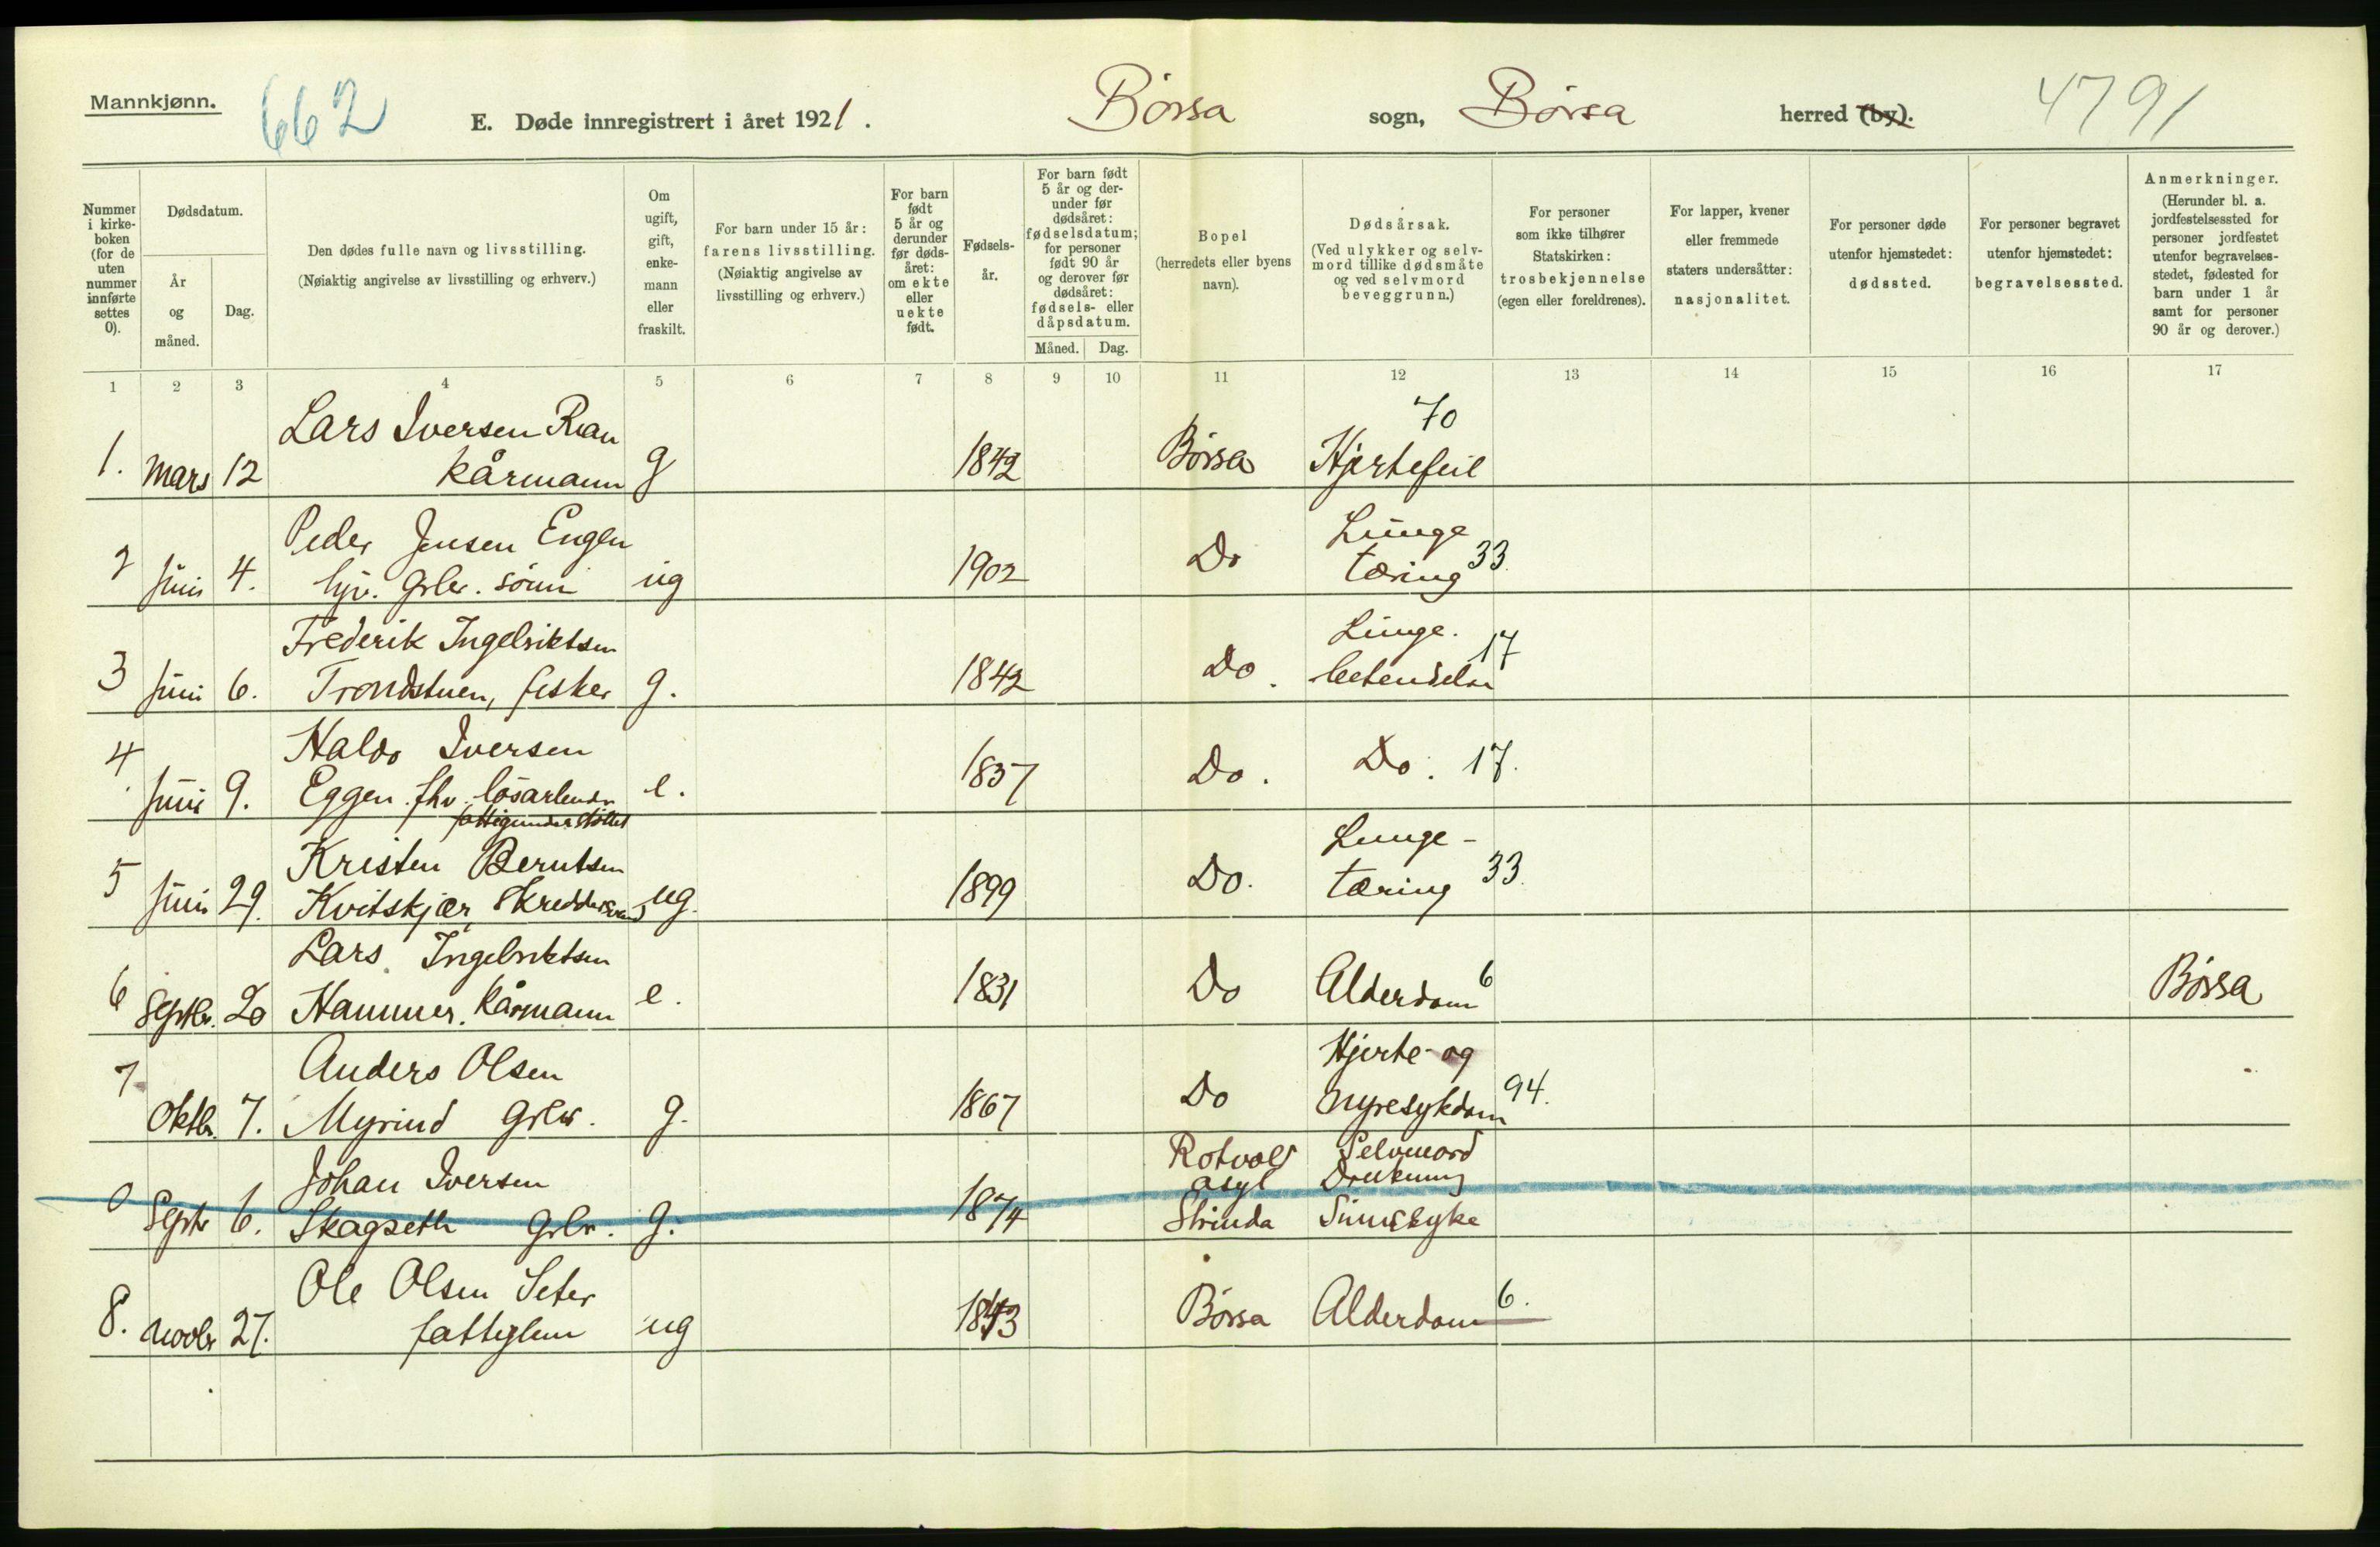 Mannkjønn.
662
E. Døde innregistrert i året 1921.
Børsa sogn, Børsa herred (by).
4791
Nummer i kirkeboken (for de uten nummer innførte settes 0).
Dødsdatum.
År og måned.
Dag.
Den dødes fulle navn og livsstilling.
(Nøiaktig angivelse av livsstilling og erhverv.)
Om ugift, gift, enkemann eller fraskilt.
For barn under 15 år: farens livsstilling.
(Nøiaktig angivelse av livsstilling og erhverv.)
For barn født 5 år og derunder før dødsåret: om ekte eller uekte født.
Fødselsår.
For barn født 5 år og derunder før dødsåret: fødselsdatum; for personer født 90 år og derover før dødsåret: fødsels- eller dåpsdatum.
Måned. Dag.
Bopel
(herredets eller byens navn).
Dødsårsak.
(Ved ulykker og selvmord tillike dødsmåte og ved selvmord beveggrunn.)
For personer som ikke tilhører Statskirken: trosbekjennelse (egen eller foreldrenes).
For lapper, kvener eller fremmede staters undersåtter: nasjonalitet.
For personer døde utenfor hjemstedet: dødssted.
For personer begravet utenfor hjemstedet: begravelsessted.
Anmerkninger.
(Herunder bl. a. jordfestelsessted for personer jordfestet utenfor begravelsesstedet, fødested for barn under 1 år samt for personer 90 år og derover.)
1 2 3 4 5 6 7 8 9 10 11 12 13 14 15 16 17
Lars Iversen Rian 70
1. Mars 12 kårmann g 1842 Børsa Hjertefeil
Peder Jensen Engen Lunge
2 Juni 4. hjv. grbr. sønn ug 1902 Do tæring 33.
Frederik Ingebriktsen Lunge.
3 Juni 6. Trondstuen, fisker g. 1842 Do. betendelse 17
Haldo Iversen
4 Juni 9. Eggen. fhv. løsarbeider e. 1837 Do. Do. 17.
fattigunderstøttet
Kristen Berntsen Lunge-
5 Juni 29. Kvitskjær, skreddersvend ug. 1899 Do. tæring 33.
Lars Ingebriktsen
6 Septbr. 20 Hammer. kårmann e. 1831 Do Alderdom 6 Børsa
Anders Olsen Hjerte- og
7 Oktbr. 7. Myrind grbr. g. 1867 Do nyresykdom 94.
Johan Iversen Rotvold asyl Selvmord Drukning
0 Septr 6. Skagseth grbr. g. 1874 Strinda Sinnssyke
Ole Olsen Seter
8. Novbr 27. fattiglem ug 1843 Børsa Alderdom 6.